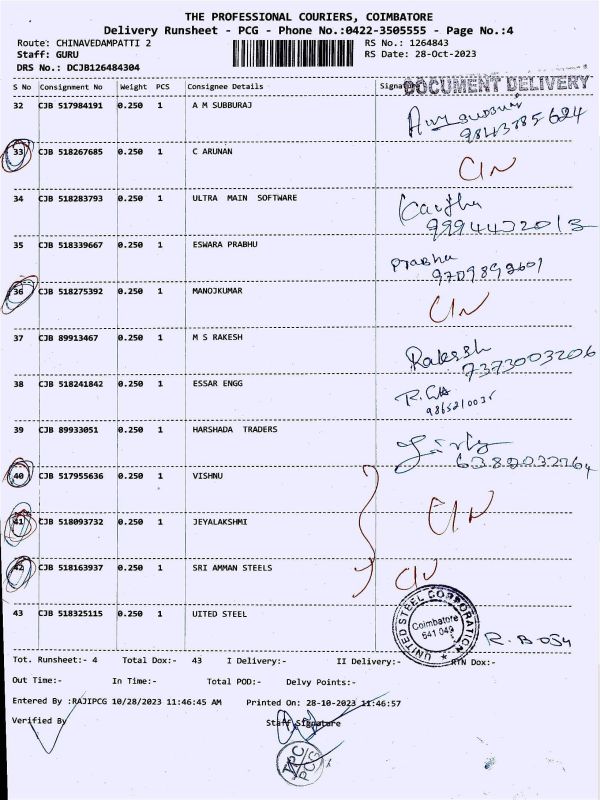 THE PROFESSIONAL COURIERS, COIMBATORE
Delivery Runsheet - PCG - Phone No.:0422-3505555 - Page No.:4
Route: CHINAVEDAMPATTI 2 RS No.: 1264843
Staff: GURU RS Date: 28-Oct-2023
DRS No.: DCJB126484304
DOCUMENT DELIVERY
S No Consignment No Weight PCS Consignee Details Signature
32 CJB 517984191 0.250 1 A M SUBBURAJ
33 CJB 518267685 0.250 1 C ARUNAN
34 CJB 518283793 0.250 1 ULTRA MAIN SOFTWARE
9994402013
35 CJB 518339667 0.250 1 ESWARA PRABHU Prabhu
36 CJB 518275392 0.250 1 MANOJKUMAR
37 CJB 89913467 0.250 1 M S RAKESH Rakesh
7373003206
38 CJB 518241842 0.250 1 ESSAR ENGG
39 CJB 89933051 0.250 1 HARSHADA TRADERS
40 CJB 517955636 0.250 1 VISHNU
41 CJB 518093732 0.250 1 JEYALAKSHMI
42 CJB 518163937 0.250 1 SRI AMMAN STEELS
43 CJB 518325115 0.250 1 UITED STEEL
UNITED STEEL CORPORATION
Coimbatore
641 049
Tot. Runsheet:- 4 Total Dox:- 43 I Delivery:- II Delivery:- RTN Dox:-
Out Time:- In Time:- Total POD:- Delvy Points:-
Entered By :RAJIPCG 10/28/2023 11:46:45 AM Printed On: 28-10-2023 11:46:57
Verified By Staff Signature
TPC
PCG